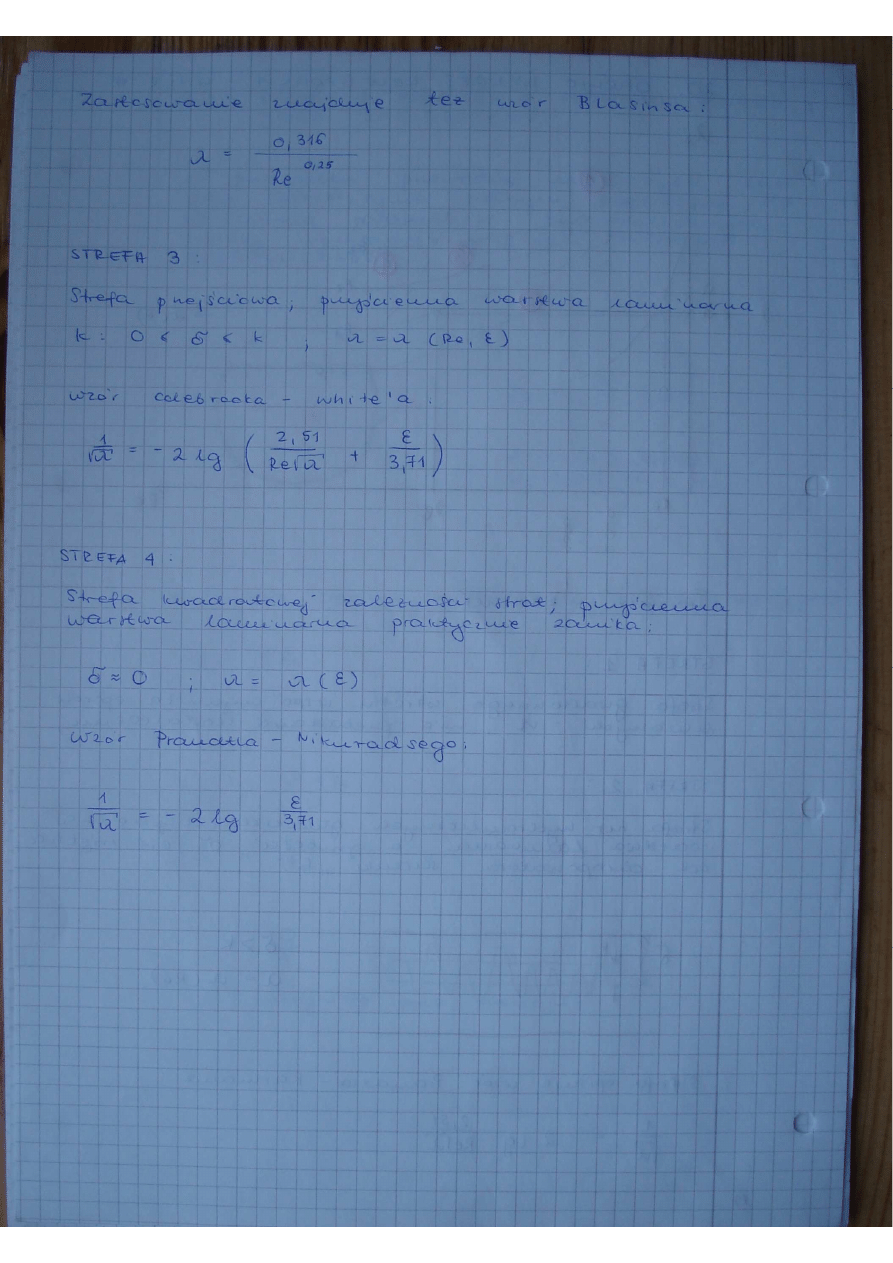 Zastosowanie znajduje też wzór Blasiusa:
λ = 0,316 / Re^0,25
STREFA 3:
Strefa przejściowa, przyścienna warstwa laminarna
k: 0 < δ < k ; λ = λ (Re, ε)
Wzór Colebrooka - White'a:
1/√λ = -2 lg ( 2,51 / Re√λ + ε / 3,71 )
STREFA 4.
Strefa kwadratowej zależności strat; przyścienna
warstwa laminarna praktycznie zanika:
δ ≈ 0 ; λ = λ (ε)
Wzór Prandtla - Nikuradsego:
1/√λ = -2 lg ε / 3,71